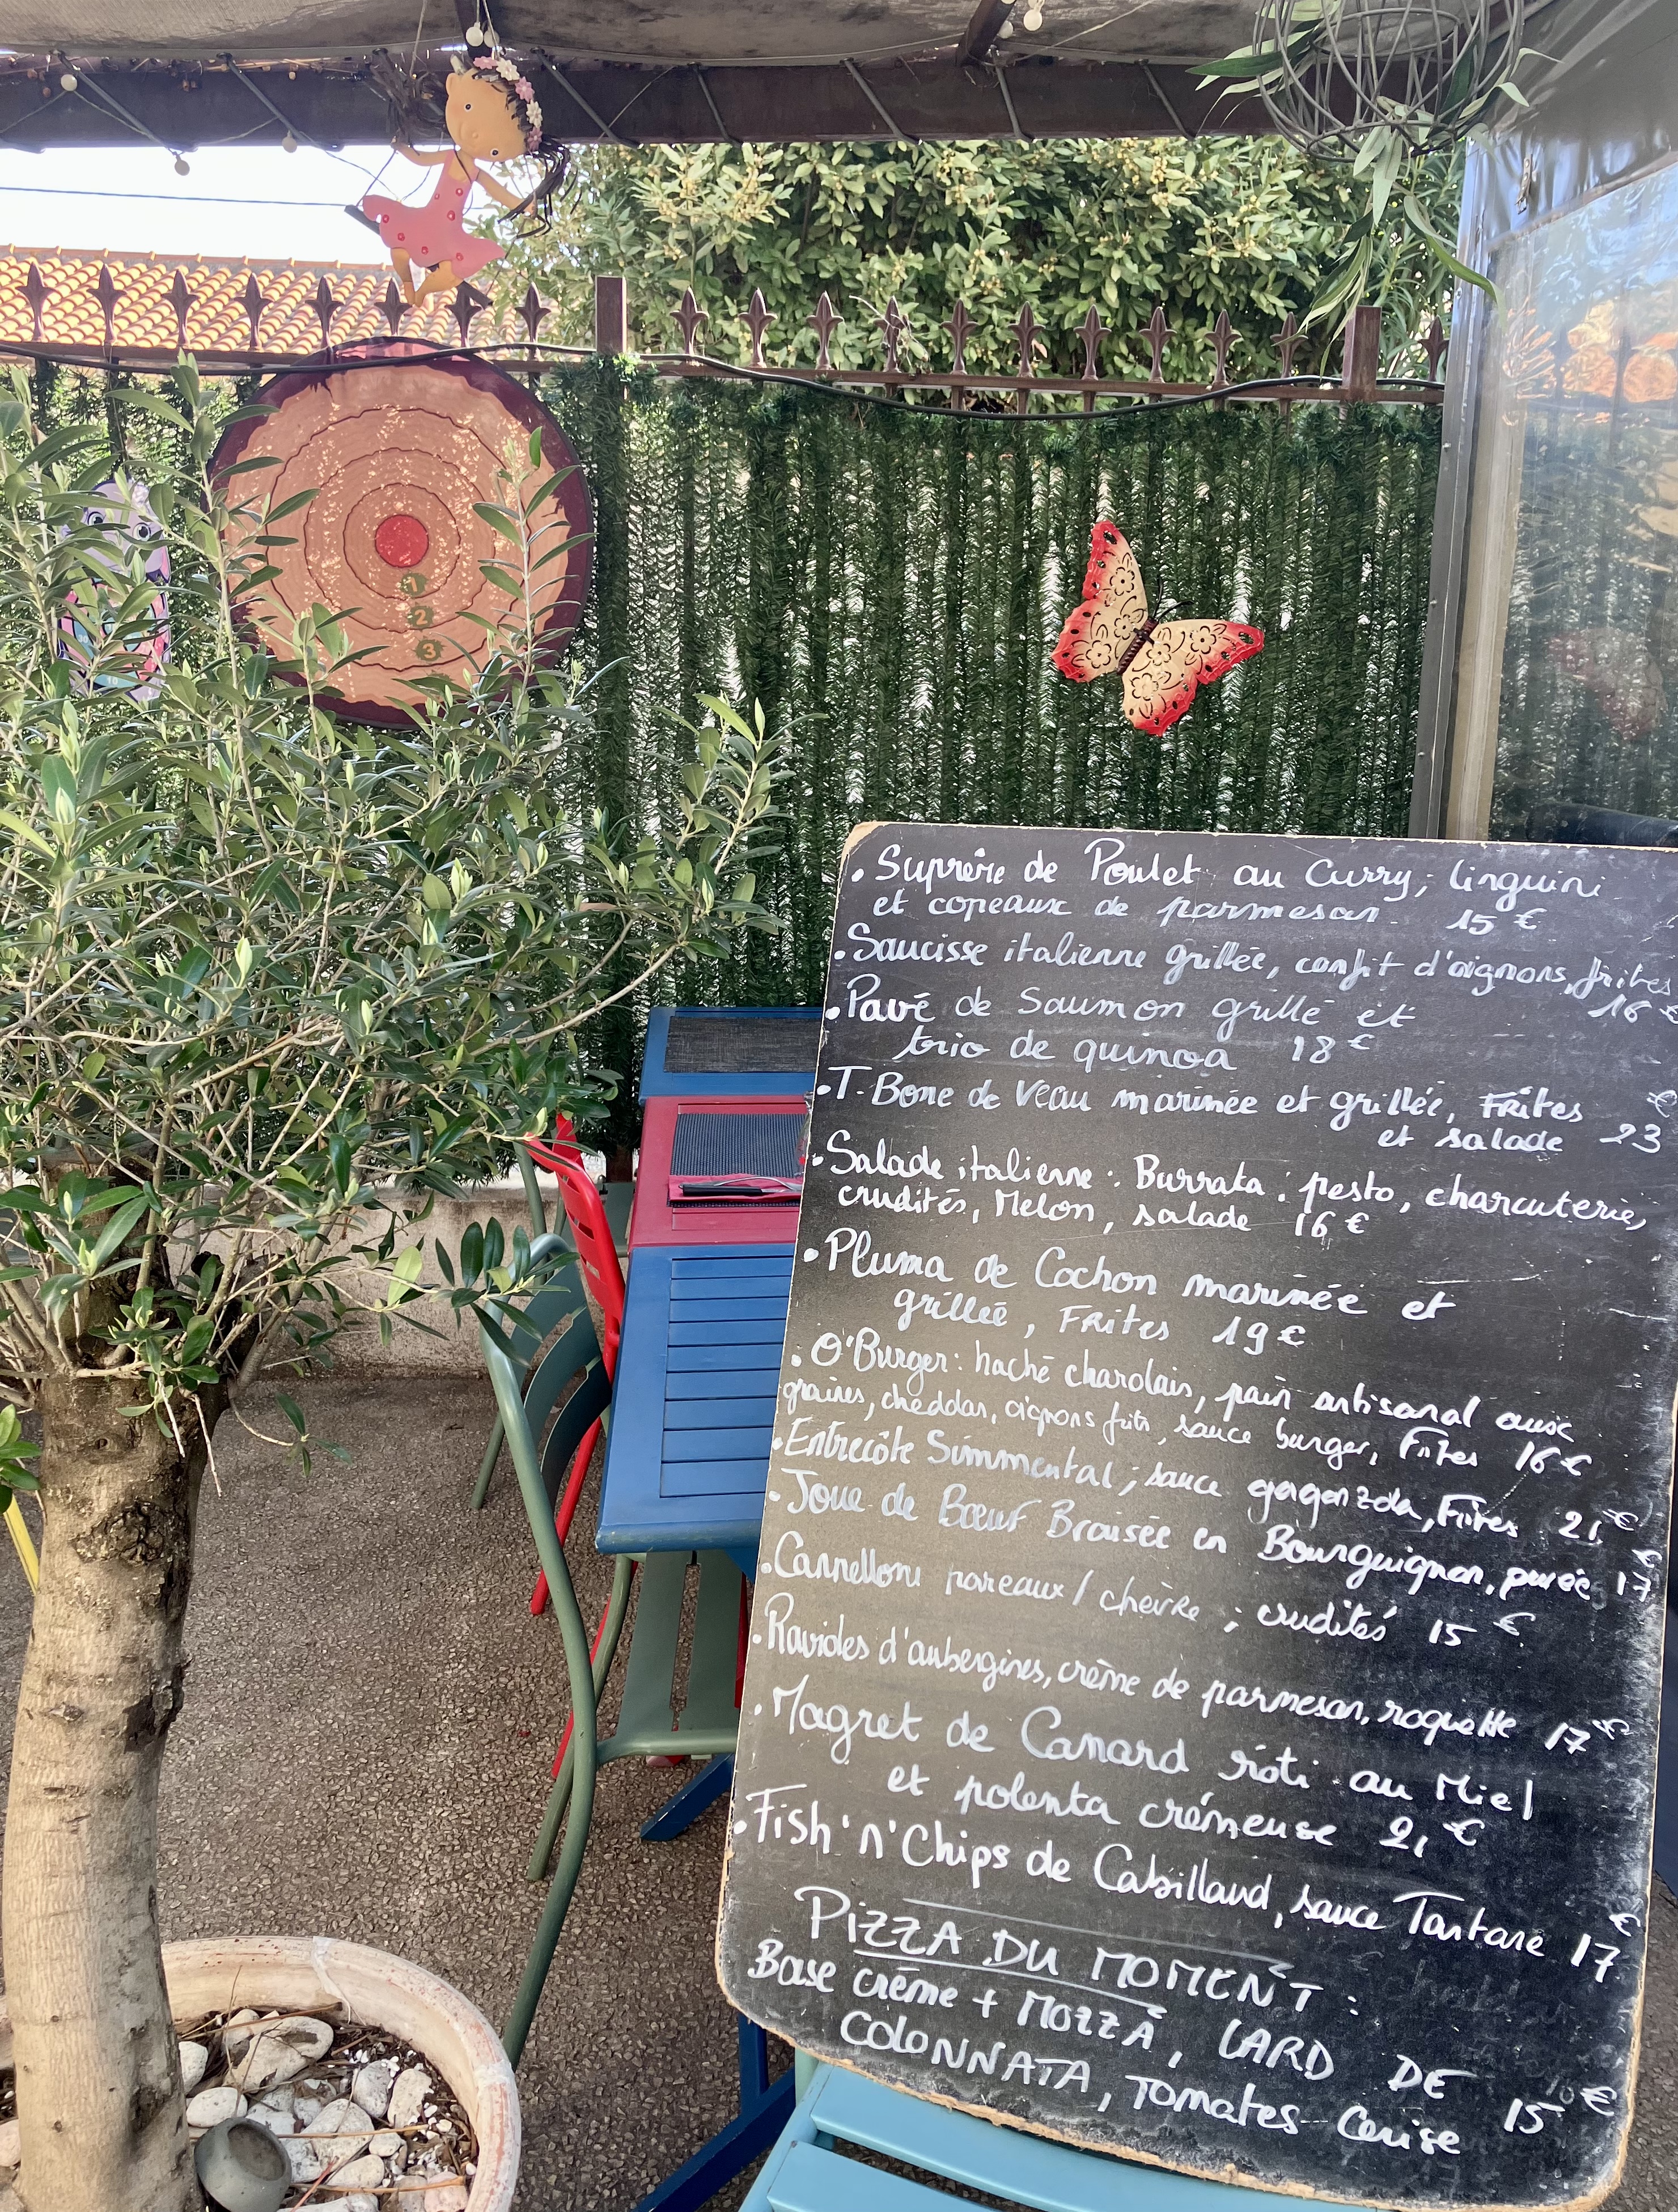 1
2
3
10
• Suprême de Poulet au Curry; linguini
et copeaux de parmesan. 15 €
• Saucisse italienne grillée, confit d'oignons, frites
16 €
• Pavé de Saumon grillé et
trio de quinoa 18 €
• T-Bone de Veau marinée et grillée, Frites
et salade 23 €
• Salade italienne : Burrata, pesto, charcuteries,
crudités, Melon, salade 16 €
• Pluma de Cochon marinée et
grillée, Frites 19 €
• O'Burger: haché charolais, pain artisanal aux
graines, cheddar, oignons frits, sauce burger, Frites 16 €
• Entrecôte Simmental; sauce gorgonzola, Frites 21 €
• Joue de Bœuf Braisée en Bourguignon, purée 17 €
• Cannelloni poreaux / chèvre ; crudités 15 €
• Ravioles d'aubergines, crème de parmesan, roquette 17 €
• Magret de Canard rôti au Miel
et polenta crémeuse 21 €
• Fish'n'Chips de Cabillaud, sauce Tartare 17 €
PIZZA DU MOMENT :
Base crème + MOZZA, LARD DE
COLONNATA, Tomates Cerise 15 €